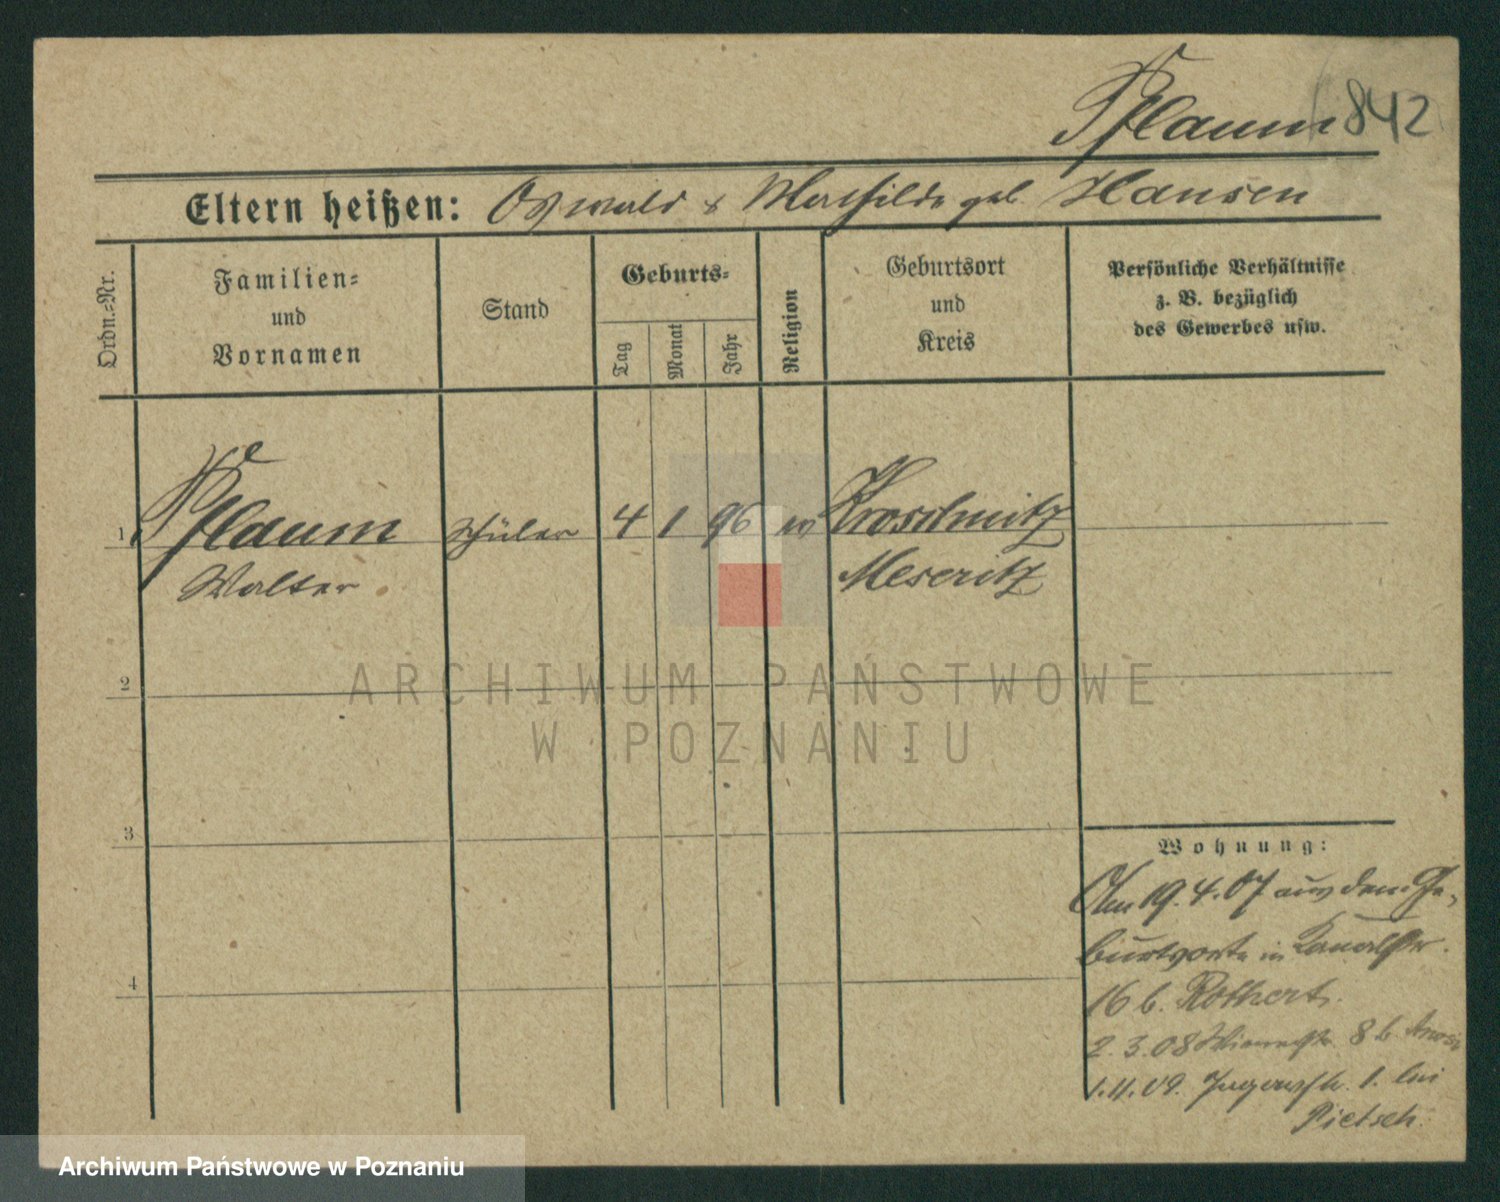 Pflaum 842
Eltern heißen: Oswald & Mathilde geb. Hansen
Ordn.=Nr.
Familien=
und
Vornamen
Stand
Geburts=
Tag
Monat
Jahr
Religion
Geburtsort
und
Kreis
Persönliche Verhältnisse
z. B. bezüglich
des Gewerbes usw.
1 Pflaum Schüler 4 1 96 ev Kroschnitz
Walter Meseritz
2
3
4
Wohnung:
Am 19.4.07 aus dem Ge-
burtsorte in Kanalstr.
16 b. Rothert.
2.3.08 8 b
1.11.09. 1. bei
Pietsch.
ARCHIWUM PAŃSTWOWE
W POZNANIU
Archiwum Państwowe w Poznaniu